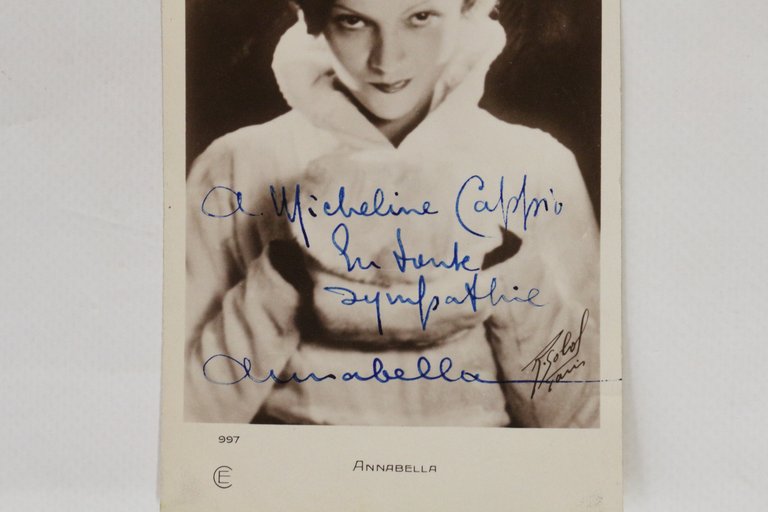 A Micheline Cappio
En toute
sympathie
Annabella
Paris
997
ANNABELLA
CE